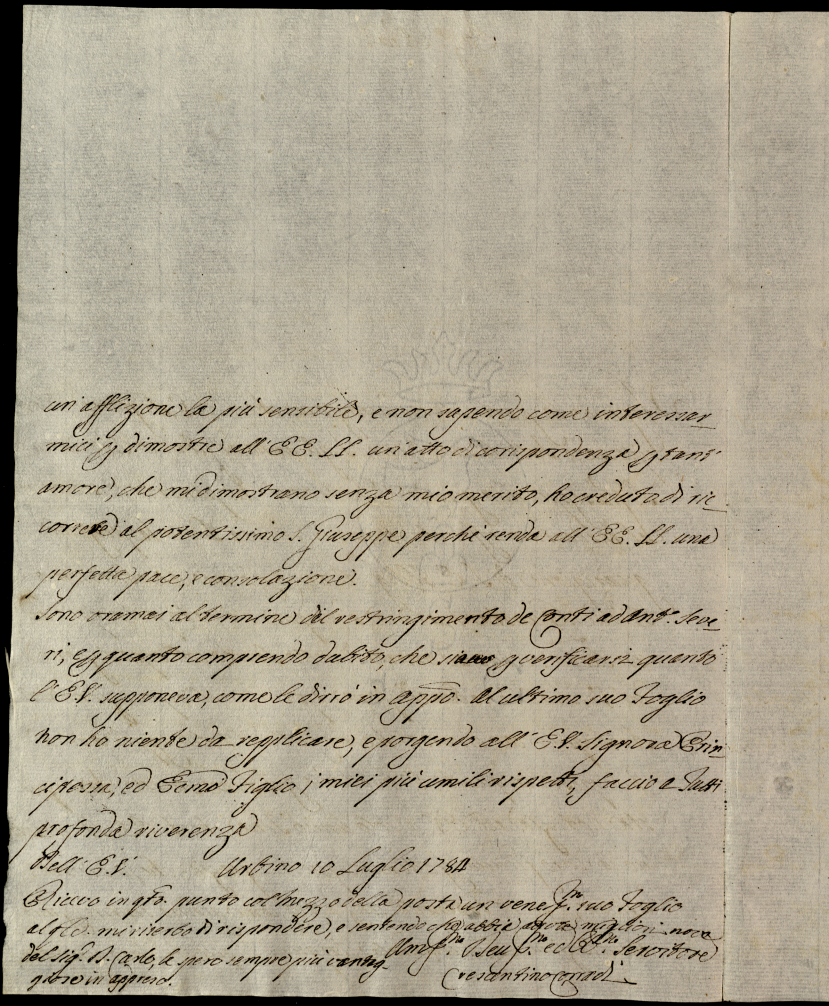 un'afflizione la più sensibile, e non sapendo come interessar
mici p dimostre all'EE. LL. un'atto di corispondenza p tant'
amore, che mi dimostrano senza mio merito, ho creduto di ric
correre al potentissimo S. Giuseppe perche renda all'EE. LL. una
perfetta pace, e consolazione.
Sono oramai al termine del restringimento de Conti ad Ant.o Seve
ri, e p quanto comprendo dubito, che p verificarsi quanto
l'E.V. supponeva, come le dirò in appo. Al ultimo suo Foglio
non ho niente da repplicare, e porgendo all'E.V. Signora Prin
cipessa, ed Ecmo Figlio i miei più umili rispetti, faccio a Tutti
profonda riverenza
Dell'E.V. Urbino 10 Luglio 1784
Ricevo in qto. punto col mezzo della posta un vene suo Foglio
al qle. mi riserbo di rispondere, e sentendo che abbia migliori nova
del Sig.r D. Carlo, le spero sempre più Um.mo ed Servitore
giore in appreso. Crescentino Corradi